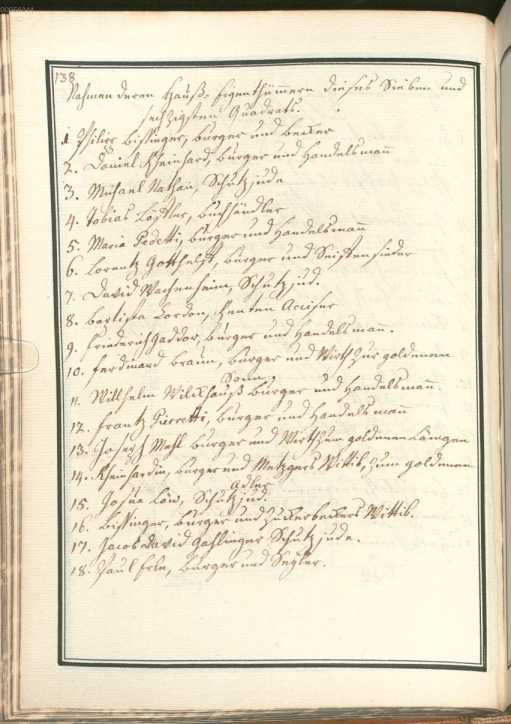 138
Nahmen deren Hauß-Eigenthümmern dieses Sieben und
sechzigsten Quadrats.
1. Philips Bissinger, burger und becker
2. Daniel Rheinhard, burger und Handelsmann
3. Michael Nathan, Schutzjude
4. Tobias Löffler, buchhändler
5. Maria Pedetti, burger und Handelsmann
6. Lorentz Gotthelff, burger und Seiffensieder
7. David Wachenheim, Schutzjud.
8. Bartista Lordon, Renten Acciser
9. Friederich Gaddor, burger und Handelsmann.
10. Ferdinand Braun, burger und Wirth zur goldenen
Sonn
11. Willhelm Wilckhauß burger und Handelsmann.
12. Frantz Pierrotti, burger und Handelsmann
13. Joseph Mohl burger und Wirth zum goldenen
14. Rheinhardin, burger und Metzgers Wittib, zum goldenen
Adler
15. Josua Löw, Schutzjud.
16. Bissinger, burger und Zuckerbeckers Wittib.
17. Jacob David Schutzjude.
18. Paul burger und